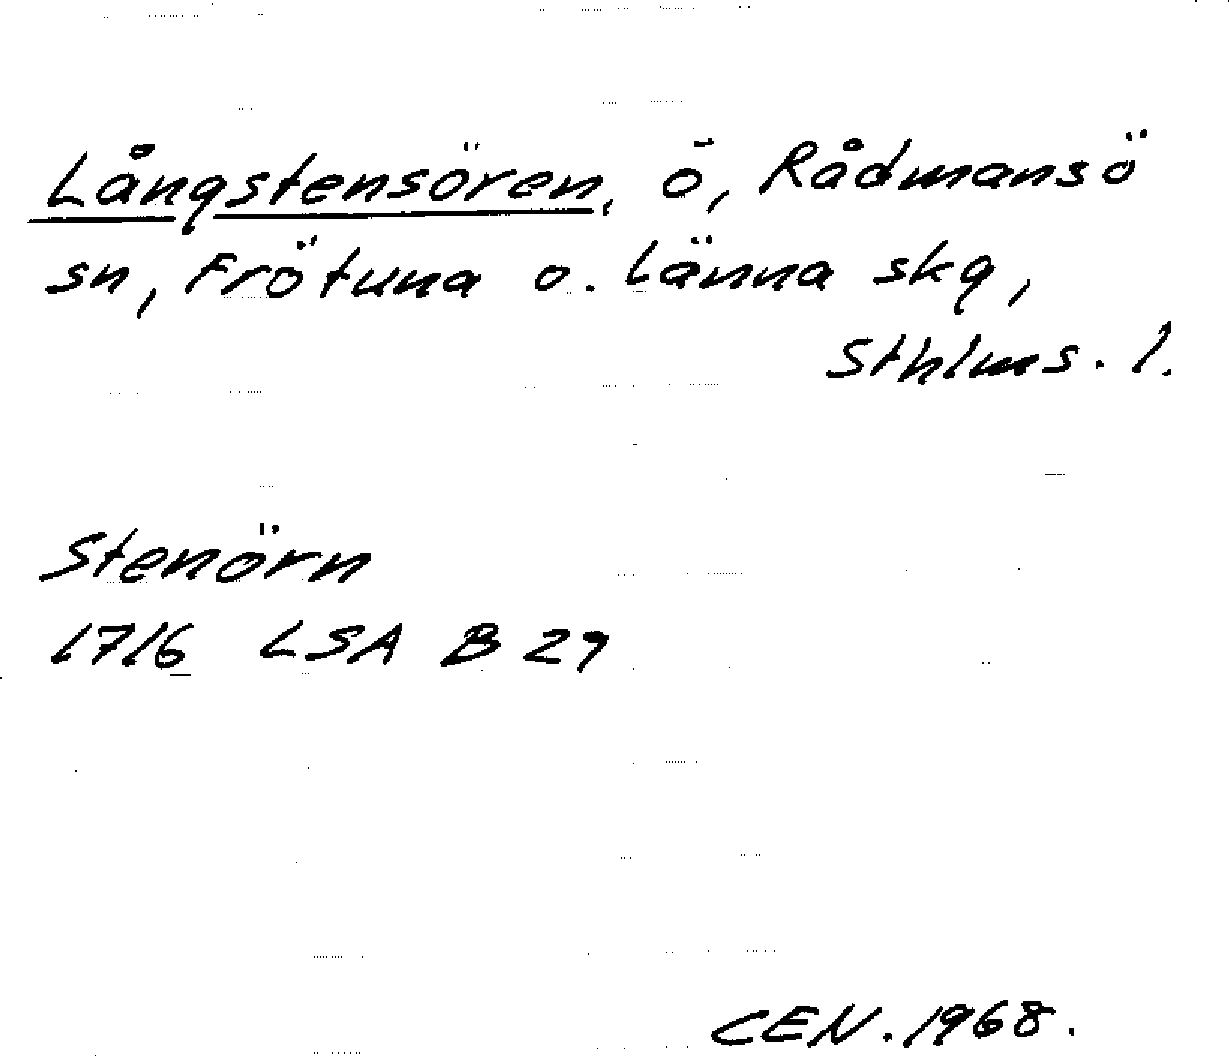 Långstensören, ö, Rådmansö
sn, Frötuna o. Länna skg,
Sthlms. l.
Stenörn
1716 LSA B 29
CEN. 1968.